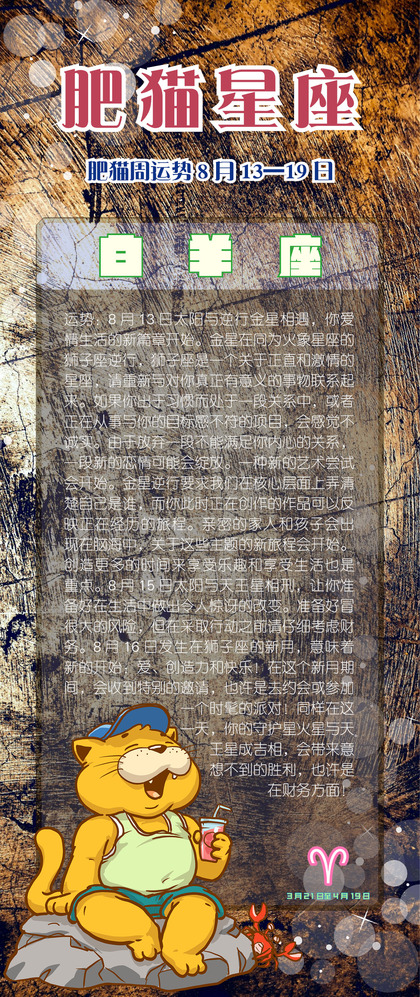 肥猫星座
肥猫周运势8月13—19日
白羊座
运势，8月13日太阳与逆行金星相遇，你爱
情生活的新篇章开始。金星在同为火象星座的
狮子座逆行，狮子座是一个关于正直和激情的
星座，请重新与对你真正有意义的事物联系起
来。如果你出于习惯而处于一段关系中，或者
正在从事与你的目标感不符的项目，会感觉不
诚实。由于放弃一段不能满足你内心的关系，
一段新的恋情可能会绽放。一种新的艺术尝试
会开始。金星逆行要求我们在核心层面上弄清
楚自己是谁，而你此时正在创作的作品可以反
映正在经历的旅程。亲密的家人和孩子会出
现在脑海中，关于这些主题的新旅程会开始。
创造更多的时间来享受乐趣和享受生活也是
重点。8月15日太阳与天王星相刑，让你准
备好在生活中做出令人惊讶的改变。准备好冒
很大的风险，但在采取行动之前请仔细考虑财
务。8月16日发生在狮子座的新月，意味着
新的开始：爱、创造力和快乐！在这个新月期
间，会收到特别的邀请，也许是去约会或参加
一个时髦的派对！同样在这
一天，你的守护星火星与天
王星成吉相，会带来意
想不到的胜利，也许是
在财务方面！
3月21日至4月19日